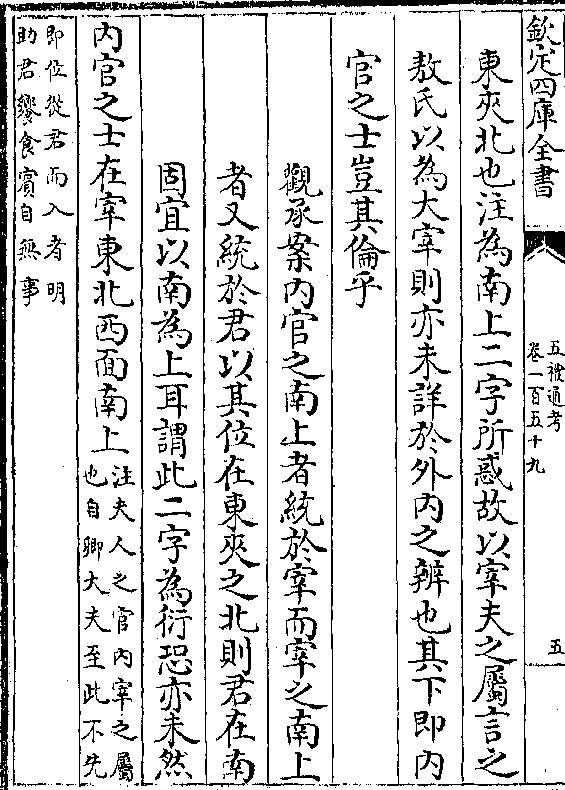 欽定四庫全書
五禮通考
卷一百五十九
五
東夾北也注為南上二字所惑故以宰夫之屬言之
敖氏以為大宰則亦未詳於外内之辨也其下即内
官之士豈其倫乎
觀承案内官之南上者統於宰而宰之南上
者又統於君以其位在東夾之北則君在南
固宜以南為上耳謂此二字為衍恐亦未然
内官之士在宰東北西面南上
注夫人之官内宰之屬
也自卿大夫至此不先
即位從君而入者明
助君饗食賓自無事